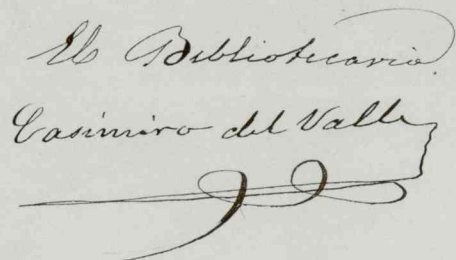 El Bibliotecario.
Casimiro del Valle